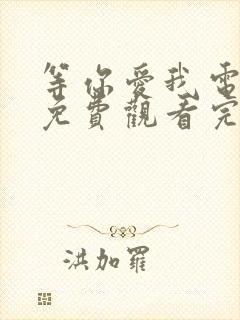 等你愛我電
免費觀看完
洪加羅